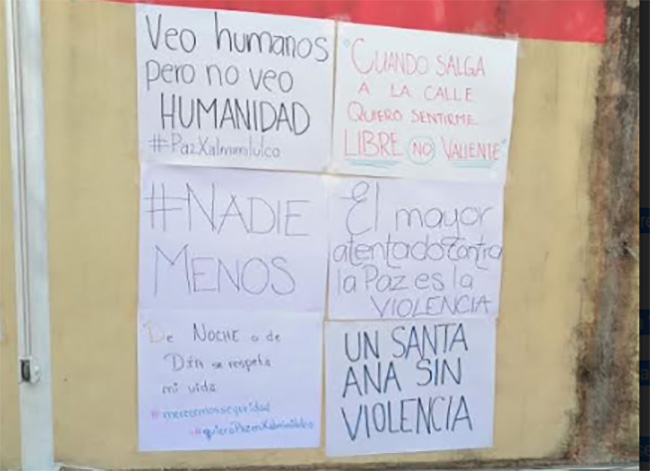 Veo humanos
pero no veo
HUMANIDAD
#PazXalmimilulco
"CUANDO SALGA
A LA CALLE
QUIERO SENTIRME
LIBRE NO VALIENTE"
#NADIE
MENOS
El mayor
atentado contra
la Paz es la
VIOLENCIA
De NOCHE o de
DÍA se respeta
mi vida
#merecemosseguridad
#quieroPazenXalmimilulco
UN SANTA
ANA SIN
VIOLENCIA